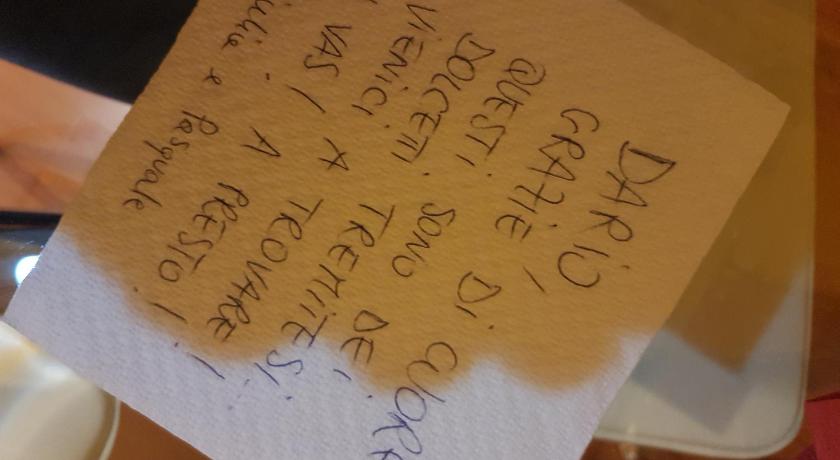 DARIO
GRAZIE DI CUOR
QUESTI SONO DEI
DOLCETTI TREMITESI.
VIENICI A TROVARE!
VAS! A PRESTO!
e Pasquale